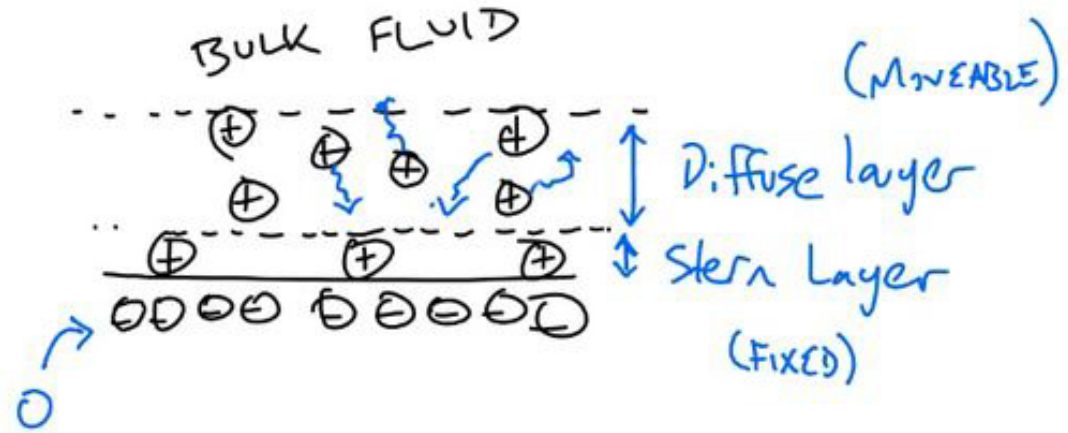 BULK FLUID
(MOVEABLE)
Diffuse layer
Stern Layer
(FIXED)